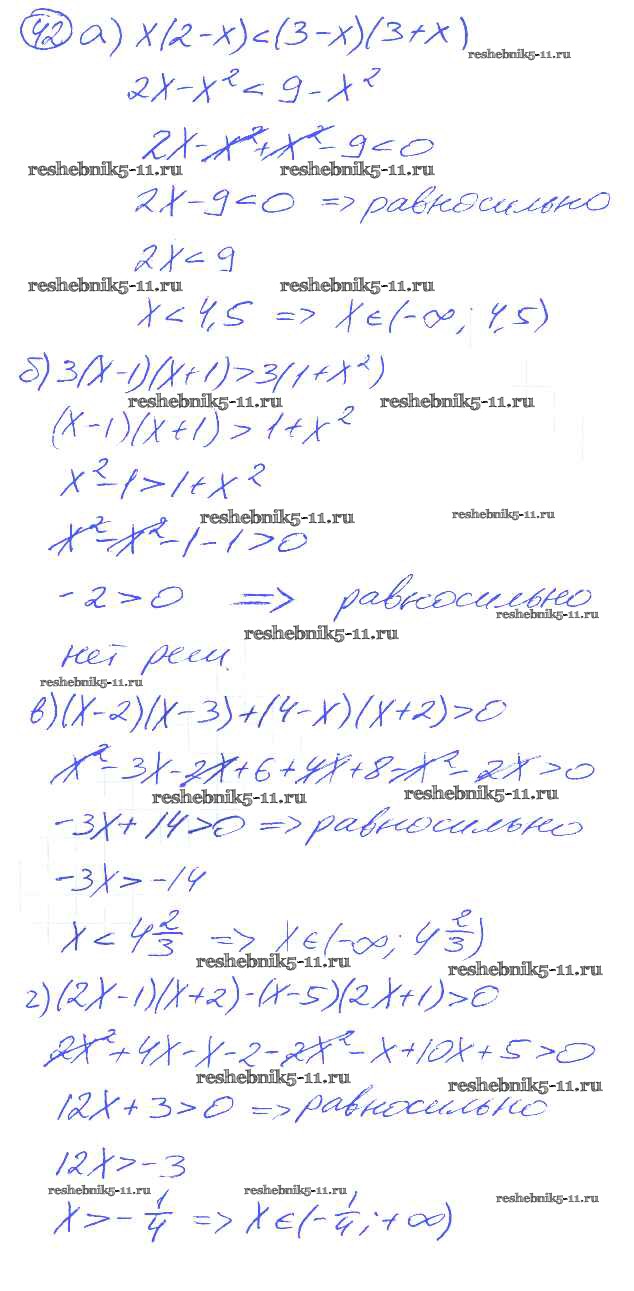 42 а) x(2-x)<(3-x)(3+x)
reshebnik5-11.ru
2x-x²<9-x²
2x-x²+x²-9<0
reshebnik5-11.ru reshebnik5-11.ru
2x-9<0 => равносильно
2x<9
reshebnik5-11.ru reshebnik5-11.ru
x<4,5 => x∈(-∞; 4,5)
б) 3(x-1)(x+1)>3(1+x²)
reshebnik5-11.ru reshebnik5-11.ru
(x-1)(x+1)>1+x²
x²-1>1+x²
reshebnik5-11.ru reshebnik5-11.ru
x²-x²-1-1>0
-2>0 => равносильно
reshebnik5-11.ru
reshebnik5-11.ru
нет реш.
reshebnik5-11.ru
в) (x-2)(x-3)+(4-x)(x+2)>0
x²-3x-2x+6+4x+8-x²-2x>0
reshebnik5-11.ru reshebnik5-11.ru
-3x+14>0 => равносильно
-3x>-14
x<4 2/3 => x∈(-∞; 4 2/3)
reshebnik5-11.ru reshebnik5-11.ru
г) (2x-1)(x+2)-(x-5)(2x+1)>0
2x²+4x-x-2-2x²-x+10x+5>0
reshebnik5-11.ru reshebnik5-11.ru
12x+3>0 => равносильно
12x>-3
reshebnik5-11.ru reshebnik5-11.ru reshebnik5-11.ru
x>-1/4 => x∈(-1/4; +∞)